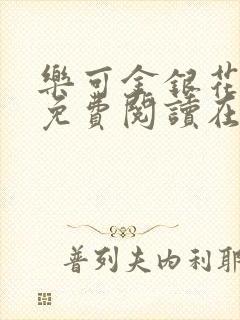 樂可金銀花
免費閱讀在
普列夫內利耶